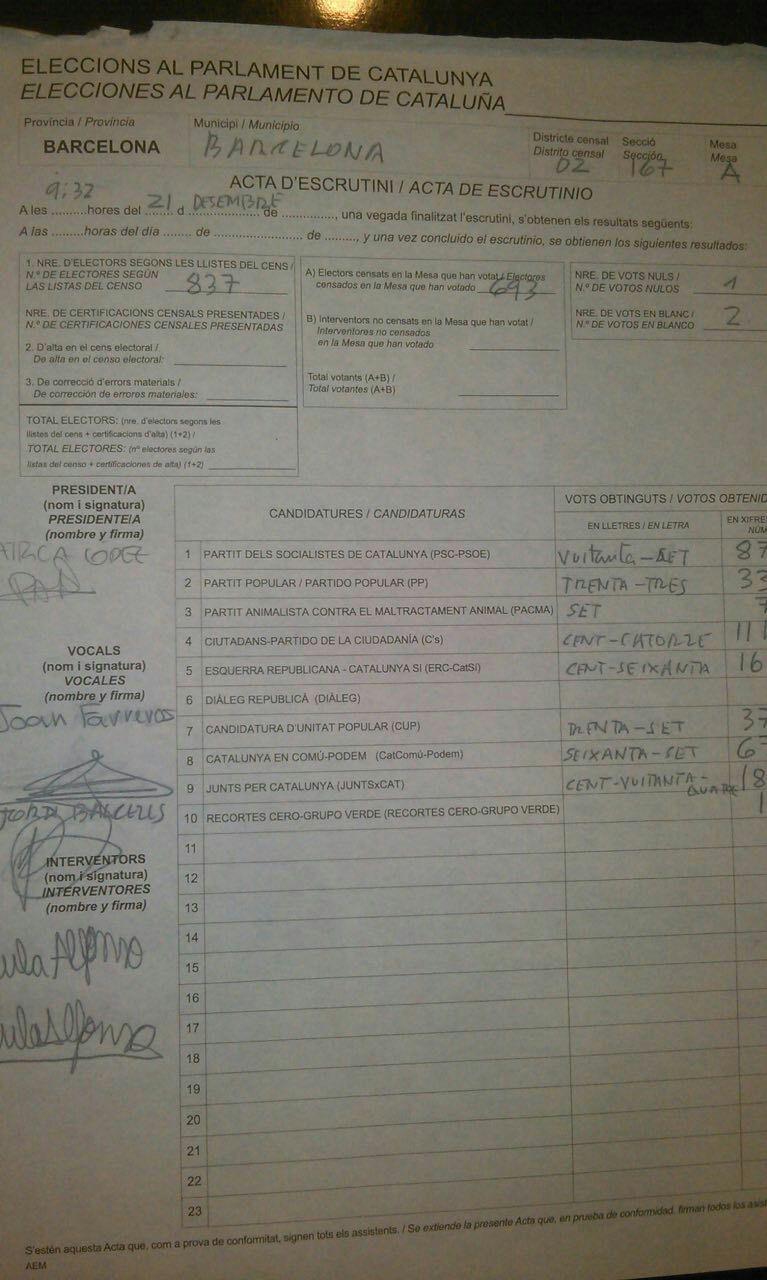 ELECCIONS AL PARLAMENT DE CATALUNYA
ELECCIONES AL PARLAMENTO DE CATALUÑA
Província / Provincia
BARCELONA
Municipi / Municipio
BARCELONA
Districte censal
Distrito censal
02
Secció
Sección
167
Mesa
Mesa
A
ACTA D'ESCRUTINI / ACTA DE ESCRUTINIO
9:32 21 DESEMBRE
A les .........hores del ........ d .................. de .............., una vegada finalitzat l'escrutini, s'obtenen els resultats següents:
A las .........horas del día ........ de ........................ de ........, y una vez concluido el escrutinio, se obtienen los siguientes resultados:
1. NRE. D'ELECTORS SEGONS LES LLISTES DEL CENS /
N.º DE ELECTORES SEGÚN
LAS LISTAS DEL CENSO 837
NRE. DE CERTIFICACIONS CENSALS PRESENTADES /
N.º DE CERTIFICACIONES CENSALES PRESENTADAS
2. D'alta en el cens electoral /
De alta en el censo electoral:
3. De correcció d'errors materials /
De corrección de errores materiales:
TOTAL ELECTORS: (nre. d'electors segons les
llistes del cens + certificacions d'alta) (1+2) /
TOTAL ELECTORES: (nº electores según las
listas del censo + certificaciones de alta) (1+2)
A) Electors censats en la Mesa que han votat / Electores
censados en la Mesa que han votado 693
B) Interventors no censats en la Mesa que han votat /
Interventores no censados
en la Mesa que han votado
Total votants (A+B) /
Total votantes (A+B)
NRE. DE VOTS NULS /
N.º DE VOTOS NULOS 1
NRE. DE VOTS EN BLANC /
N.º DE VOTOS EN BLANCO 2
PRESIDENT/A
(nom i signatura)
PRESIDENTE/A
(nombre y firma)
VOCALS
(nom i signatura)
VOCALES
(nombre y firma)
Joan Farreros
JORDI BALCELLS
INTERVENTORS
(nom i signatura)
INTERVENTORES
(nombre y firma)
ula Alfonso
ula Alfonso
CANDIDATURES / CANDIDATURAS
VOTS OBTINGUTS / VOTOS OBTENID
EN LLETRES / EN LETRA
EN XIFRE
NÚM
1 PARTIT DELS SOCIALISTES DE CATALUNYA (PSC-PSOE) Vuitanta-SET 87
2 PARTIT POPULAR / PARTIDO POPULAR (PP) TRENTA-TRES 33
3 PARTIT ANIMALISTA CONTRA EL MALTRACTAMENT ANIMAL (PACMA) SET 7
4 CIUTADANS-PARTIDO DE LA CIUDADANÍA (C's) CENT-CATORZE 11
5 ESQUERRA REPUBLICANA - CATALUNYA SI (ERC-CatSí) CENT-SEIXANTA 16
6 DIÀLEG REPUBLICÀ (DIÀLEG)
7 CANDIDATURA D'UNITAT POPULAR (CUP) TRENTA-SET 37
8 CATALUNYA EN COMÚ-PODEM (CatComú-Podem) SEIXANTA-SET 67
9 JUNTS PER CATALUNYA (JUNTSxCAT) CENT-VUITANTA-QUATRE 18
10 RECORTES CERO-GRUPO VERDE (RECORTES CERO-GRUPO VERDE) 1
11
12
13
14
15
16
17
18
19
20
21
22
23
S'estén aquesta Acta que, com a prova de conformitat, signen tots els assistents. / Se extiende la presente Acta que, en prueba de conformidad, firman todos los asist
AEM